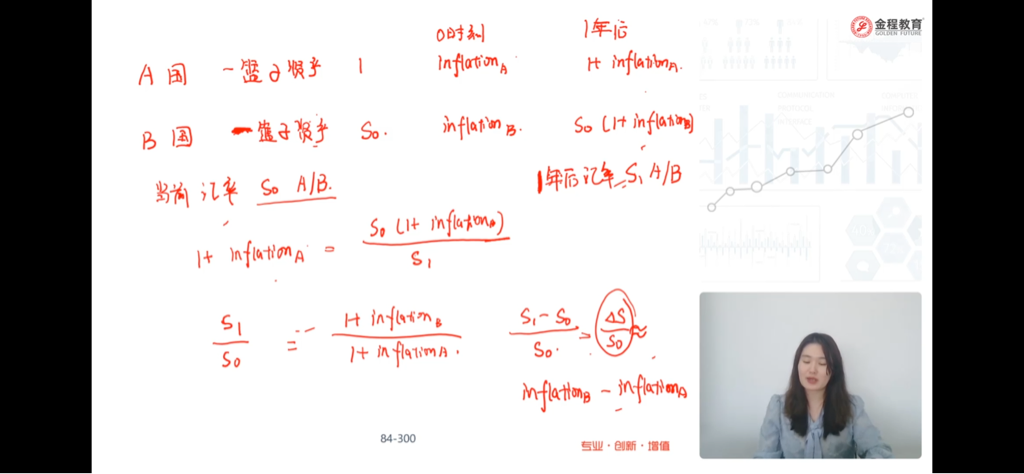 金程教育
GOLDEN FUTURE
0时刻 1年后
A国 一篮子货币 1 inflation A 1+ inflation A.
B国 一篮子货币 S0. inflation B. S0 (1+ inflation B)
当前汇率 S0 A/B. 1年后汇率 S1 A/B
1+ inflation A = S0 (1+ inflation B) / S1
S1/S0 = 1+ inflation B / 1+ inflation A. S1-S0/S0. = ΔS/S0 ≈
inflation B - inflation A
84-300
专业·创新·增值